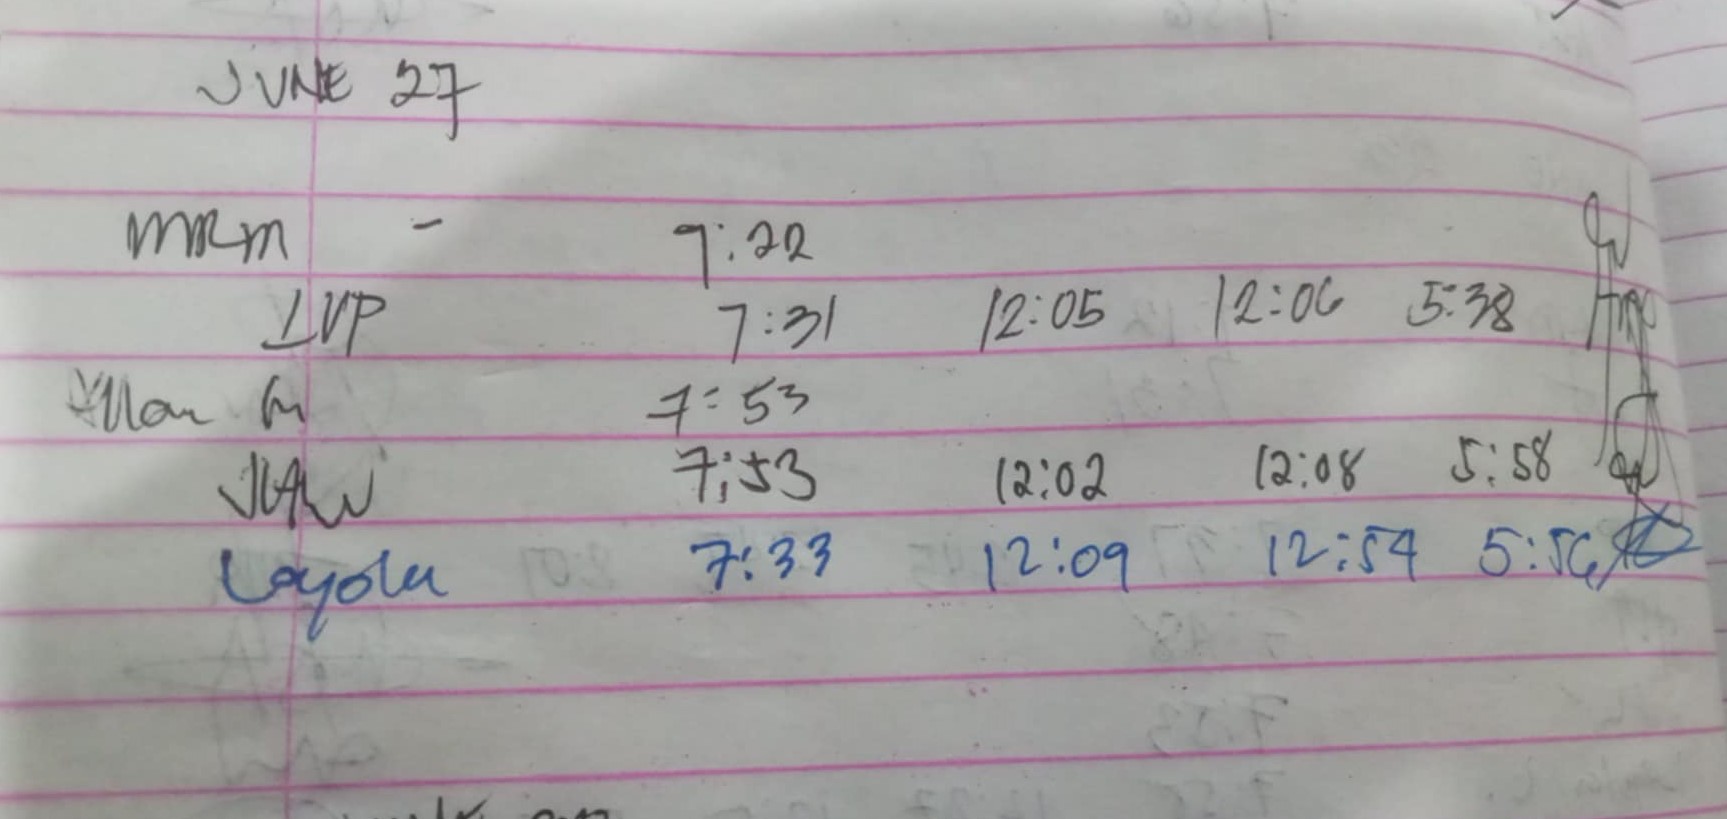 JUNE 27
MRM - 7:22
LVP 7:31 12:05 12:06 5:38
Allan 7:53
JLAW 7:53 12:02 12:08 5:58
Loyola 7:33 12:09 12:54 5:56